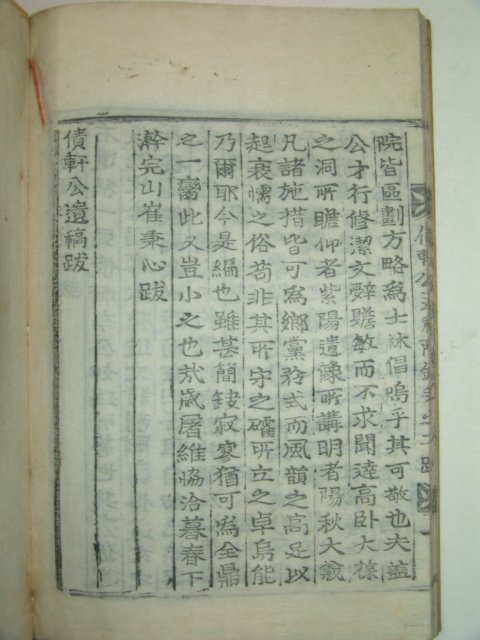 院皆區劃方略爲士林倡嗚乎其可敬也夫蓋
公才行修潔文辭贍敏而不求聞達高卧大葆
之洞所瞻仰者紫陽遺像所講明者陽秋大義
凡諸施措皆可爲鄕黨矜式而風韻之高足以
起衰懦之俗苟非其所守之確所立之卓烏能
乃爾耶今是編也雖甚簡缺寂寥猶可爲全鼎
之一臠此又豈小之也㢤歲屠維協洽暮春下
澣完山崔秉心跋
債軒公遺稿跋